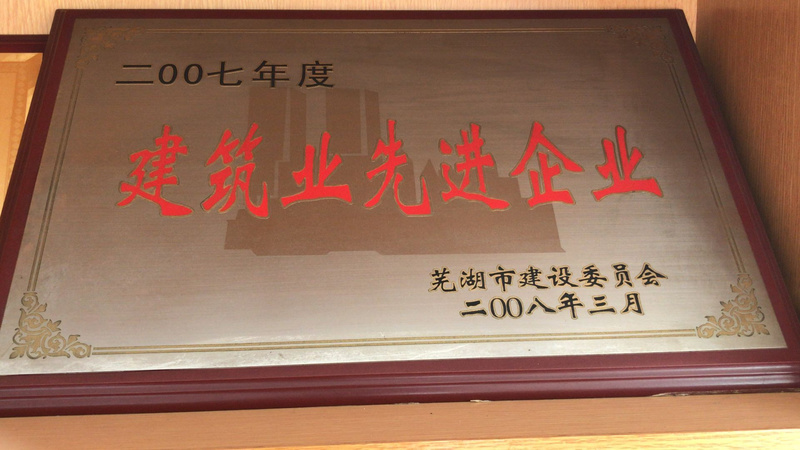 二00七年度
建筑业先进企业
芜湖市建设委员会
二00八年三月